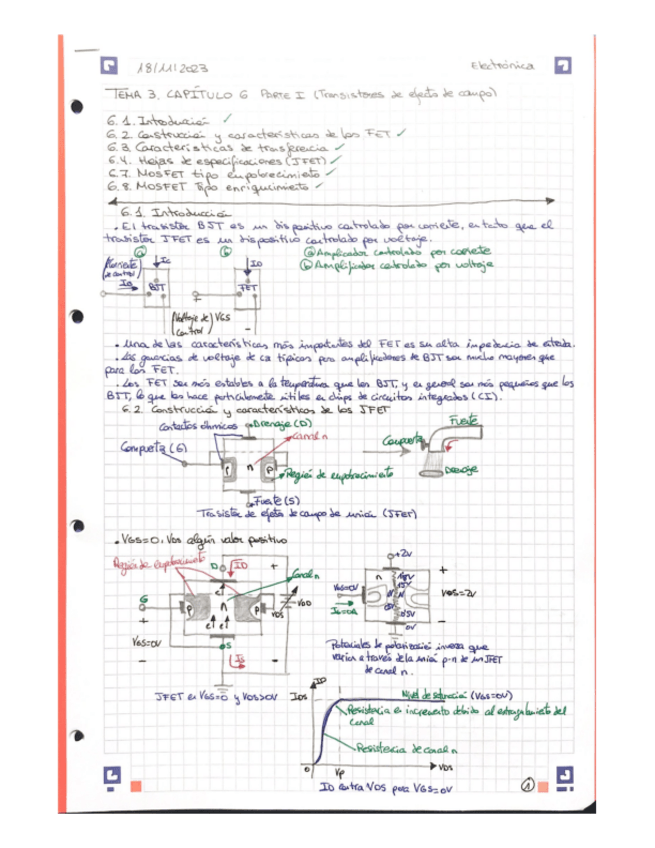 18/11/2023
Electrónica
TEMA 3. CAPÍTULO 6 PARTE I (Transistores de efecto de campo)
6.1. Introducción ✓
6.2 Construcción y características de los FET ✓
6.3. Características de transferencia ✓
6.4. Hojas de especificaciones (JFET) ✓
6.7. MOSFET tipo empobrecimiento ✓
6.8. MOSFET Tipo enriquecimiento ✓
6.1. Introducción
. El transistor BJT es un dispositivo controlado por corriente, en tanto que el
transistor JFET es un dispositivo controlado por voltaje.
a b
ⓐ Amplificador controlado por corriente
ⓑ Amplificador controlado por voltaje
(Corriente de control)
IC
IB
BJT
ID
FET
(Voltaje de control)
VGS
+
-
. Una de las características más importantes del FET es su alta impedancia de entrada.
. Las ganancias de voltaje de ca típicas para amplificadores de BJT son mucho mayores que
para los FET.
. Los FET son más estables a la temperatura que los BJT, y en general son más pequeños que los
BJT, lo que los hace particularmente útiles en chips de circuitos integrados (CI).
6.2. Construcción y características de los JFET
Contactos óhmicos
Drenaje (D)
Canal n
Compuerta (G)
p n p
Región de empobrecimiento
Fuente (S)
Transistor de efecto de campo de unión (JFET)
Fuente
Compuerta
Drenaje
. VGS=0, VDS algún valor positivo
Región de empobrecimiento
D
ID
+
Canal n
G
p n p
e e e
VDD
VDS
+
VGS=0V
-
S
IS
-
JFET en VGS=0 y VDS>0V
+2V
n
+
VGS=0V
IG=0A
1.5V
1V
0.5V
0V
VDS=2V
-
Potenciales de polarización inversa que
varían a través de la unión p-n de un JFET
de canal n.
ID
IDS
Nivel de saturación (VGS=0V)
Resistencia en incremento debido al estrangulamiento del
canal
Resistencia de canal n
0
Vp
VDS
ID contra VDS para VGS=0V
1